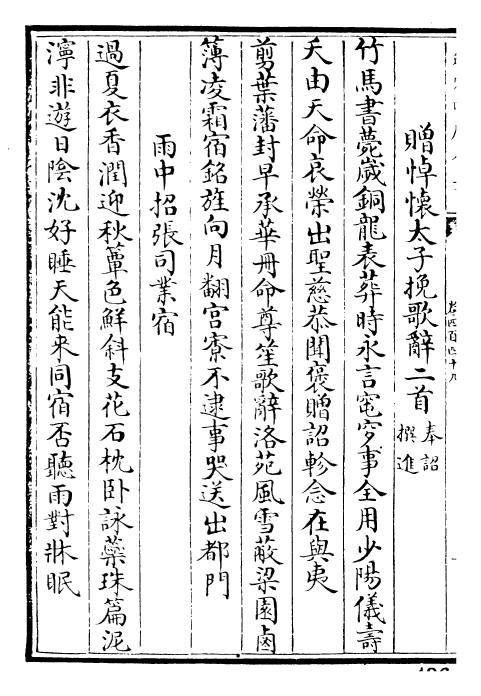 卷四百四十九
贈悼懷太子挽歌辭二首 奉詔撰進
竹馬書薨歲銅龍表葬時永言窀穸事全用少陽儀壽
夭由天命哀榮出聖慈恭聞褒贈詔軫念在與夷
剪葉藩封早承華冊命尊笙歌辭洛苑風雪蔽梁園鹵
薄凌霜宿銘旌向月翻宮寮不逮事哭送出都門
雨中招張司業宿
過夏衣香潤迎秋簟色鮮斜支花石枕卧詠藥珠篇泥
濘非遊日陰沈好睡天能来同宿否聽雨對牀眠